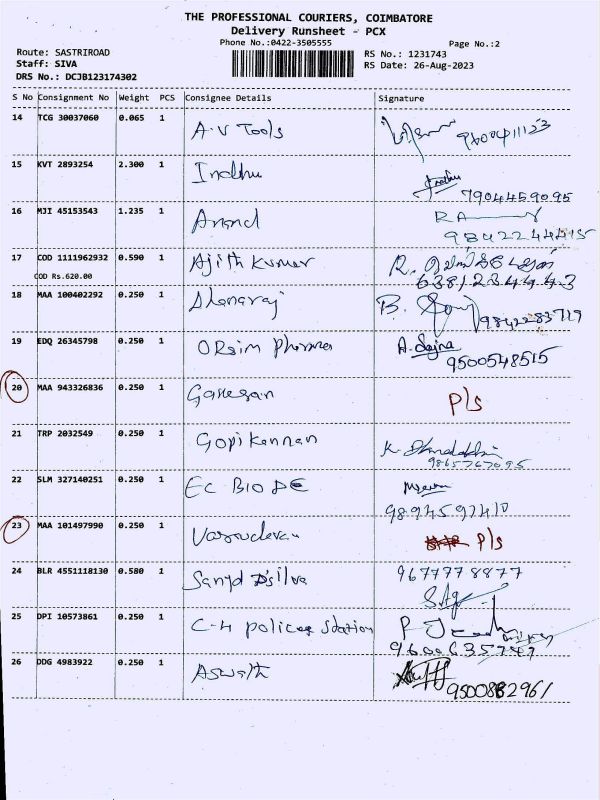 THE PROFESSIONAL COURIERS, COIMBATORE
Delivery Runsheet - PCX
Phone No.:0422-3505555
Page No.:2
Route: SASTRIROAD
Staff: SIVA
DRS No.: DCJB123174302
RS No.: 1231743
RS Date: 26-Aug-2023
S No Consignment No Weight PCS Consignee Details Signature
14 TCG 30037060 0.065 1 A.V Tools
15 KVT 2893254 2.300 1 Indhu
7904459095
16 MJI 45153543 1.235 1 Anand
17 COD 1111962932 0.590 1 Ajith Kumar R.
COD Rs.620.00 6381234443
18 MAA 100402292 0.250 1 Dhanaraj B.
9842283719
19 EDQ 26345798 0.250 1 Orsim Pharma A.
9500548515
20 MAA 943326836 0.250 1 Ganesan P/s
21 TRP 2032549 0.250 1 Gopi Kannan K.
9865767095
22 SLM 327140251 0.250 1 EC BIO DE
23 MAA 101497990 0.250 1 Vasudevan P/s
24 BLR 4551118130 0.580 1 9677778877
25 DPI 10573861 0.250 1 C-4 police station P
9600635747
26 DDG 4983922 0.250 1 Aswath